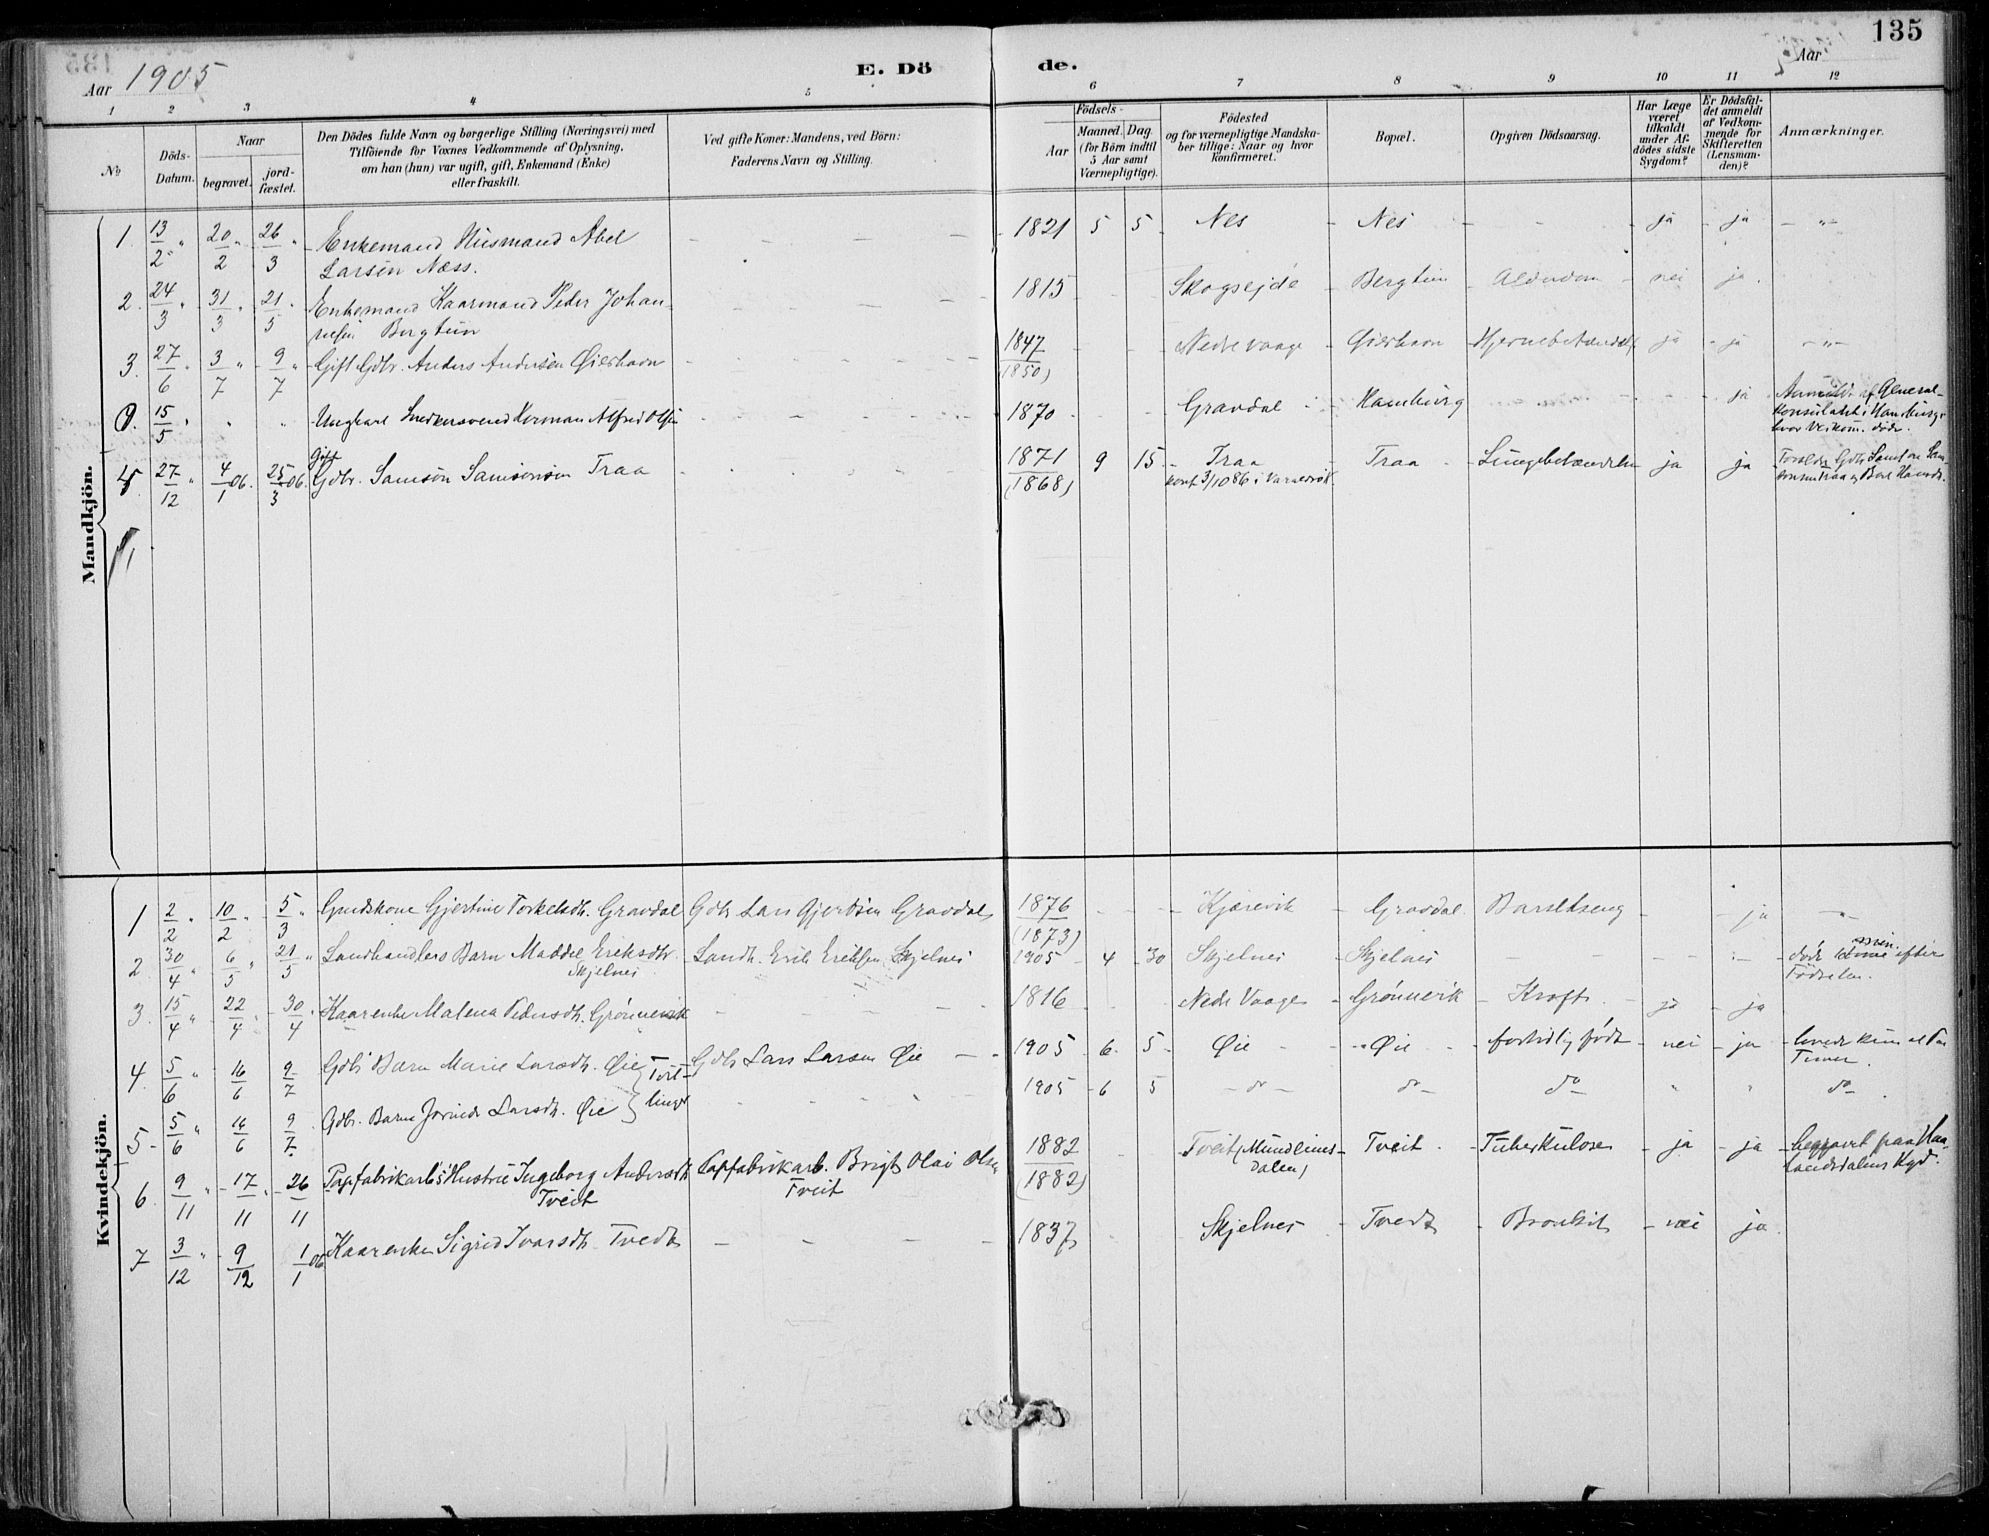 135
Aar 1905
E. Döde.
Aar
1 2 3 4 5 6 7 8 9 10 11 12
No
Döds-Datum.
Naar
begravet.
jord-fæstet.
Den Dödes fulde Navn og borgerlige Stilling (Næringsvei) med
Tilföiende for Voxnes Vedkommende af Oplysning,
om han (hun) var ugift, gift, Enkemand (Enke)
eller fraskilt.
Ved gifte Koner: Mandens, ved Börn:
Faderens Navn og Stilling.
Födsels-
Aar
Maaned. Dag.
(for Börn indtil
5 Aar samt
Værnepligtige).
Födested
og for værnepligtige Mandska-
ber tillige: Naar og hvor
konfirmeret.
Bopæl.
Opgiven Dödsaarsag.
Har Læge
været
tilkaldt
under Af-
dödes sidste
Sygdom?
Er Dödsfal-
det anmeldt
af Vedkom-
mende for
Skifteretten
(Lensman-
den)?
Anmærkninger.
Mandkjön.
1. 13/2 " 20/2 " 26/3 " Enkemand Husmand Abel
Larsen Næss. 1821 5 5 Nes Nes ja ja "
2. 24/3 " 31/3 " 21/5 Enkemand Kaarmand Peder Johan-
nesen Bergtun 1815 Skogsejde Bergtun Alderdom nei ja
3. 27/6 3/7 " 9/7 " Gift Gdbr. Anders Andersen Øierhavn 1847 (1850) Nedre Vaage Øierhavn Hjernebetændelse ja ja "
15/5 " " " Ungkarl Snedkersvend Herman Alfred Olsen 1870 Gravdal Hamburg ja Anmeldt af General-
konsulatet i Hamburg,
hvor Vedkom. døde.
4 27/12 4/1 06. 25/3 06. Gift
Gdbr. Samson Samsonsen Traa 1871 (1868) 9 15 Traa
konf 3/10 86 i Varaldsøi Traa Lungebetændelse ja ja
Kvindekjön.
1 2/2 " 10/2 " 5/3 " Gmdskone Gjertine Torkelsdt. Gravdal Gdbr Lars Gjertsen Gravdal 1876 (1873) Kjærevik Gravdal Barselseng ja "
2. 30/4 " 6/5 " 21/5 " Landhandlers Barn Maddel Eriksdtr.
Skjelnes Landh. Erik Eriksen Skjelnes 1905 4 30 Skjelnes Skjelnes døde min. efter
Fødselen.
3. 15/4 " 22/4 30/4 Kaarenke Malena Pedersdt. Grønnevik 1816 Nedre Vaage Grønnevik Kræft ja ja
4. 5/6 " 16/6 9/7 Gdbr Barn Marie Larsdt. Øie Tvil- Gdbr Lars Larsen Øie 1905 6 5 Øie Øie fortidlig født nei ja levede kun et Par
Timer.
5 5/6 " 16/6 9/7 Gdbr. Barn Larsdt. Øie linger 1905 6 5 do do do " " do
6. 9/11 " 17/11 " 26/11 Papfabrikarb's Hustru Ingeborg Andersdt
Tveit Papfabrikarb. Brigt Olai Olsen
Tveit 1882 (1882) Tveit (Mundheims-
dalen) Tveit Tuberkulose ja ja begravet paa Haa-
landsdalens Kgd.
7 3/12 " 9/12 1/1 06 Kaarenke Sigrid Ivarsdt. Tvedt 1837 Skjelnes Tvedt Bronkit nei ja